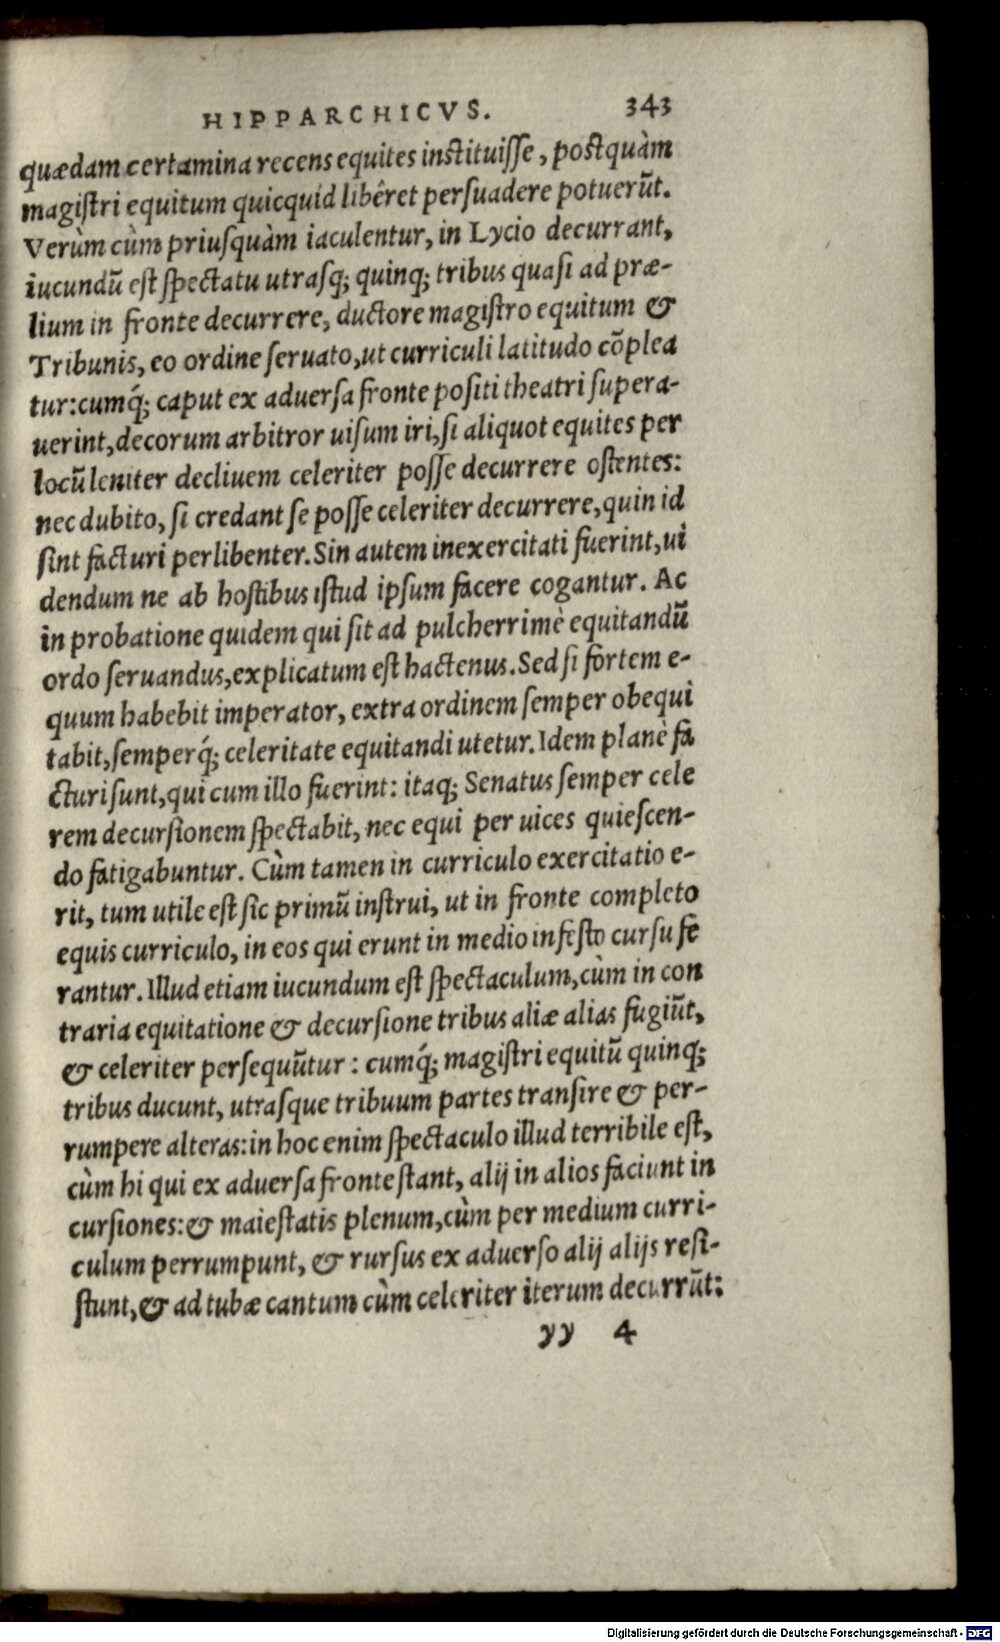 HIPPARCHICVS. 343
quædam certamina recens equites instituisse, postquàm
magistri equitum quicquid libêret persuadere potuerũt.
Verùm cùm priusquàm iaculentur, in Lycio decurrant,
iucundũ est spectatu utrasq; quinq; tribus quasi ad præ-
lium in fronte decurrere, ductore magistro equitum &
Tribunis, eo ordine seruato, ut curriculi latitudo cõplea
tur: cumq́; caput ex aduersa fronte positi theatri supera-
uerint, decorum arbitror uisum iri, si aliquot equites per
locũ leniter decliuem celeriter posse decurrere ostentes:
nec dubito, si credant se posse celeriter decurrere, quin id
sint facturi perlibenter. Sin autem inexercitati fuerint, ui
dendum ne ab hostibus istud ipsum facere cogantur. Ac
in probatione quidem qui sit ad pulcherrimè equitandũ
ordo seruandus, explicatum est hactenus. Sed si fortem e-
quum habebit imperator, extra ordinem semper obequi
tabit, semperq́; celeritate equitandi utetur. Idem planè fa
cturi sunt, qui cum illo fuerint: itaq; Senatus semper cele
rem decursionem spectabit, nec equi per uices quiescen-
do fatigabuntur. Cùm tamen in curriculo exercitatio e-
rit, tum utile est sic primũ instrui, ut in fronte completo
equis curriculo, in eos qui erunt in medio infesto cursu fe
rantur. Illud etiam iucundum est spectaculum, cùm in con
traria equitatione & decursione tribus aliæ alias fugiũt,
& celeriter persequũtur : cumq́; magistri equitũ quinq;
tribus ducunt, utrasque tribuum partes transire & per-
rumpere alteras: in hoc enim spectaculo illud terribile est,
cùm hi qui ex aduersa fronte stant, alij in alios faciunt in
cursiones: & maiestatis plenum, cùm per medium curri-
culum perrumpunt, & rursus ex aduerso alij alijs resi-
stunt, & ad tubæ cantum cùm celeriter iterum decurrũt:
yy 4
Digitalisierung gefördert durch die Deutsche Forschungsgemeinschaft - DFG